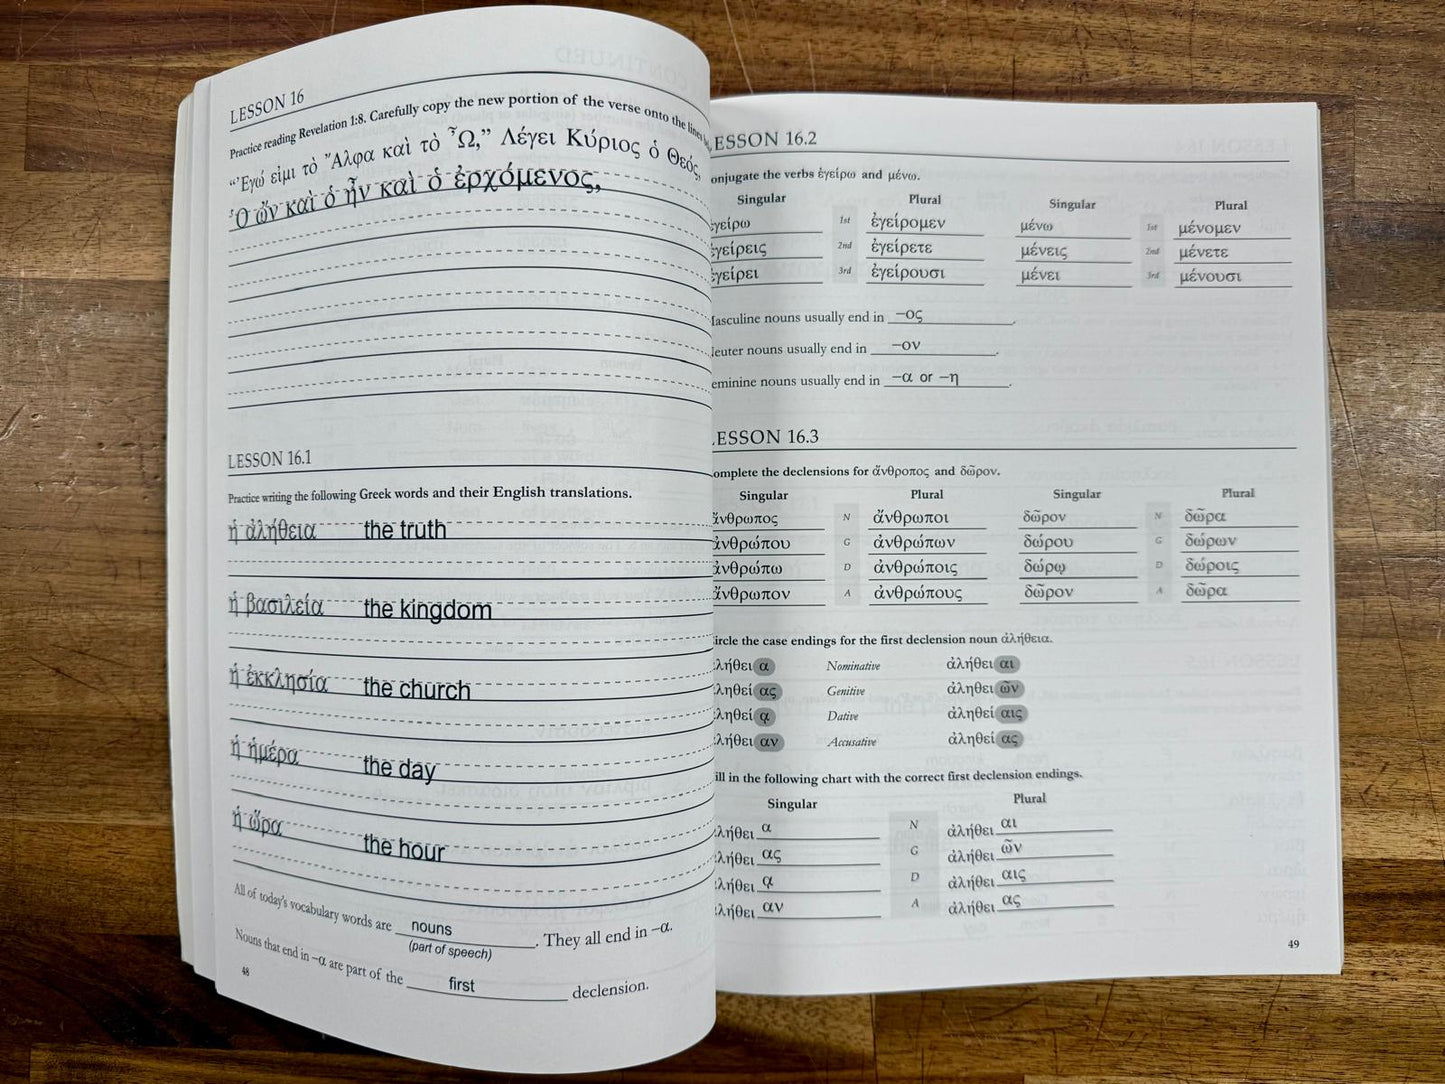 LESSON 16
Practice reading Revelation 1:8. Carefully copy the new portion of the verse onto the lines
“Ἐγώ εἰμι τὸ Ἄλφα καὶ τὸ Ὦ,” Λέγει Κύριος ὁ Θεός,
Ὁ ὢν καὶ ὁ ἦν καὶ ὁ ἐρχόμενος,
LESSON 16.1
Practice writing the following Greek words and their English translations.
ἡ ἀλήθεια the truth
ἡ βασιλεία the kingdom
ἡ ἐκκλησία the church
ἡ ἡμέρα the day
ἡ ὥρα the hour
All of today’s vocabulary words are nouns. They all end in –α.
(part of speech)
Nouns that end in –α are part of the first declension.
48
ESSON 16.2
onjugate the verbs ἐγείρω and μένω.
Singular Plural Singular Plural
ἐγείρω 1st ἐγείρομεν μένω 1st μένομεν
γείρεις 2nd ἐγείρετε μένεις 2nd μένετε
γείρει 3rd ἐγείρουσι μένει 3rd μένουσι
asculine nouns usually end in –ος.
euter nouns usually end in –ον.
eminine nouns usually end in –α or –η.
ESSON 16.3
omplete the declensions for ἄνθροπος and δῶρον.
Singular Plural Singular Plural
ἄνθρωπος N ἄνθρωποι δῶρον N δῶρα
ἀνθρώπου G ἀνθρώπων δώρου G δώρων
ἀνθρώπω D ἀνθρώποις δώρῳ D δώροις
ἄνθρωπον A ἀνθρώπους δῶρον A δῶρα
ircle the case endings for the first declension noun ἀλήθεια.
λήθει α Nominative ἀλήθει αι
ληθεί ας Genitive ἀληθει ῶν
ληθεί ᾳ Dative ἀληθεί αις
λήθει αν Accusative ἀληθεί ας
ill in the following chart with the correct first declension endings.
Singular Plural
λήθει α N ἀλήθει αι
λήθει ας G ἀλήθει ῶν
λήθει ᾳ D ἀλήθει αις
λήθει αν A ἀλήθει ας
49